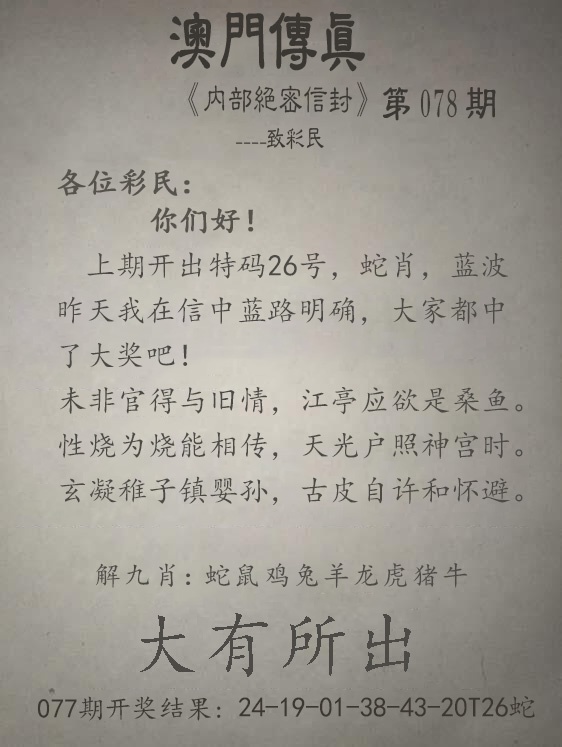 澳門傳眞
《内部絕密信封》第078期
----致彩民
各位彩民：
你们好！
上期开出特码26号，蛇肖，蓝波
昨天我在信中蓝路明确，大家都中
了大奖吧！
未非官得与旧情，江亭应欲是桑鱼。
性烧为烧能相传，天光户照神宫时。
玄凝稚子镇婴孙，古皮自许和怀避。
解九肖：蛇鼠鸡兔羊龙虎猪牛
大有所出
077期开奖结果：24-19-01-38-43-20T26蛇